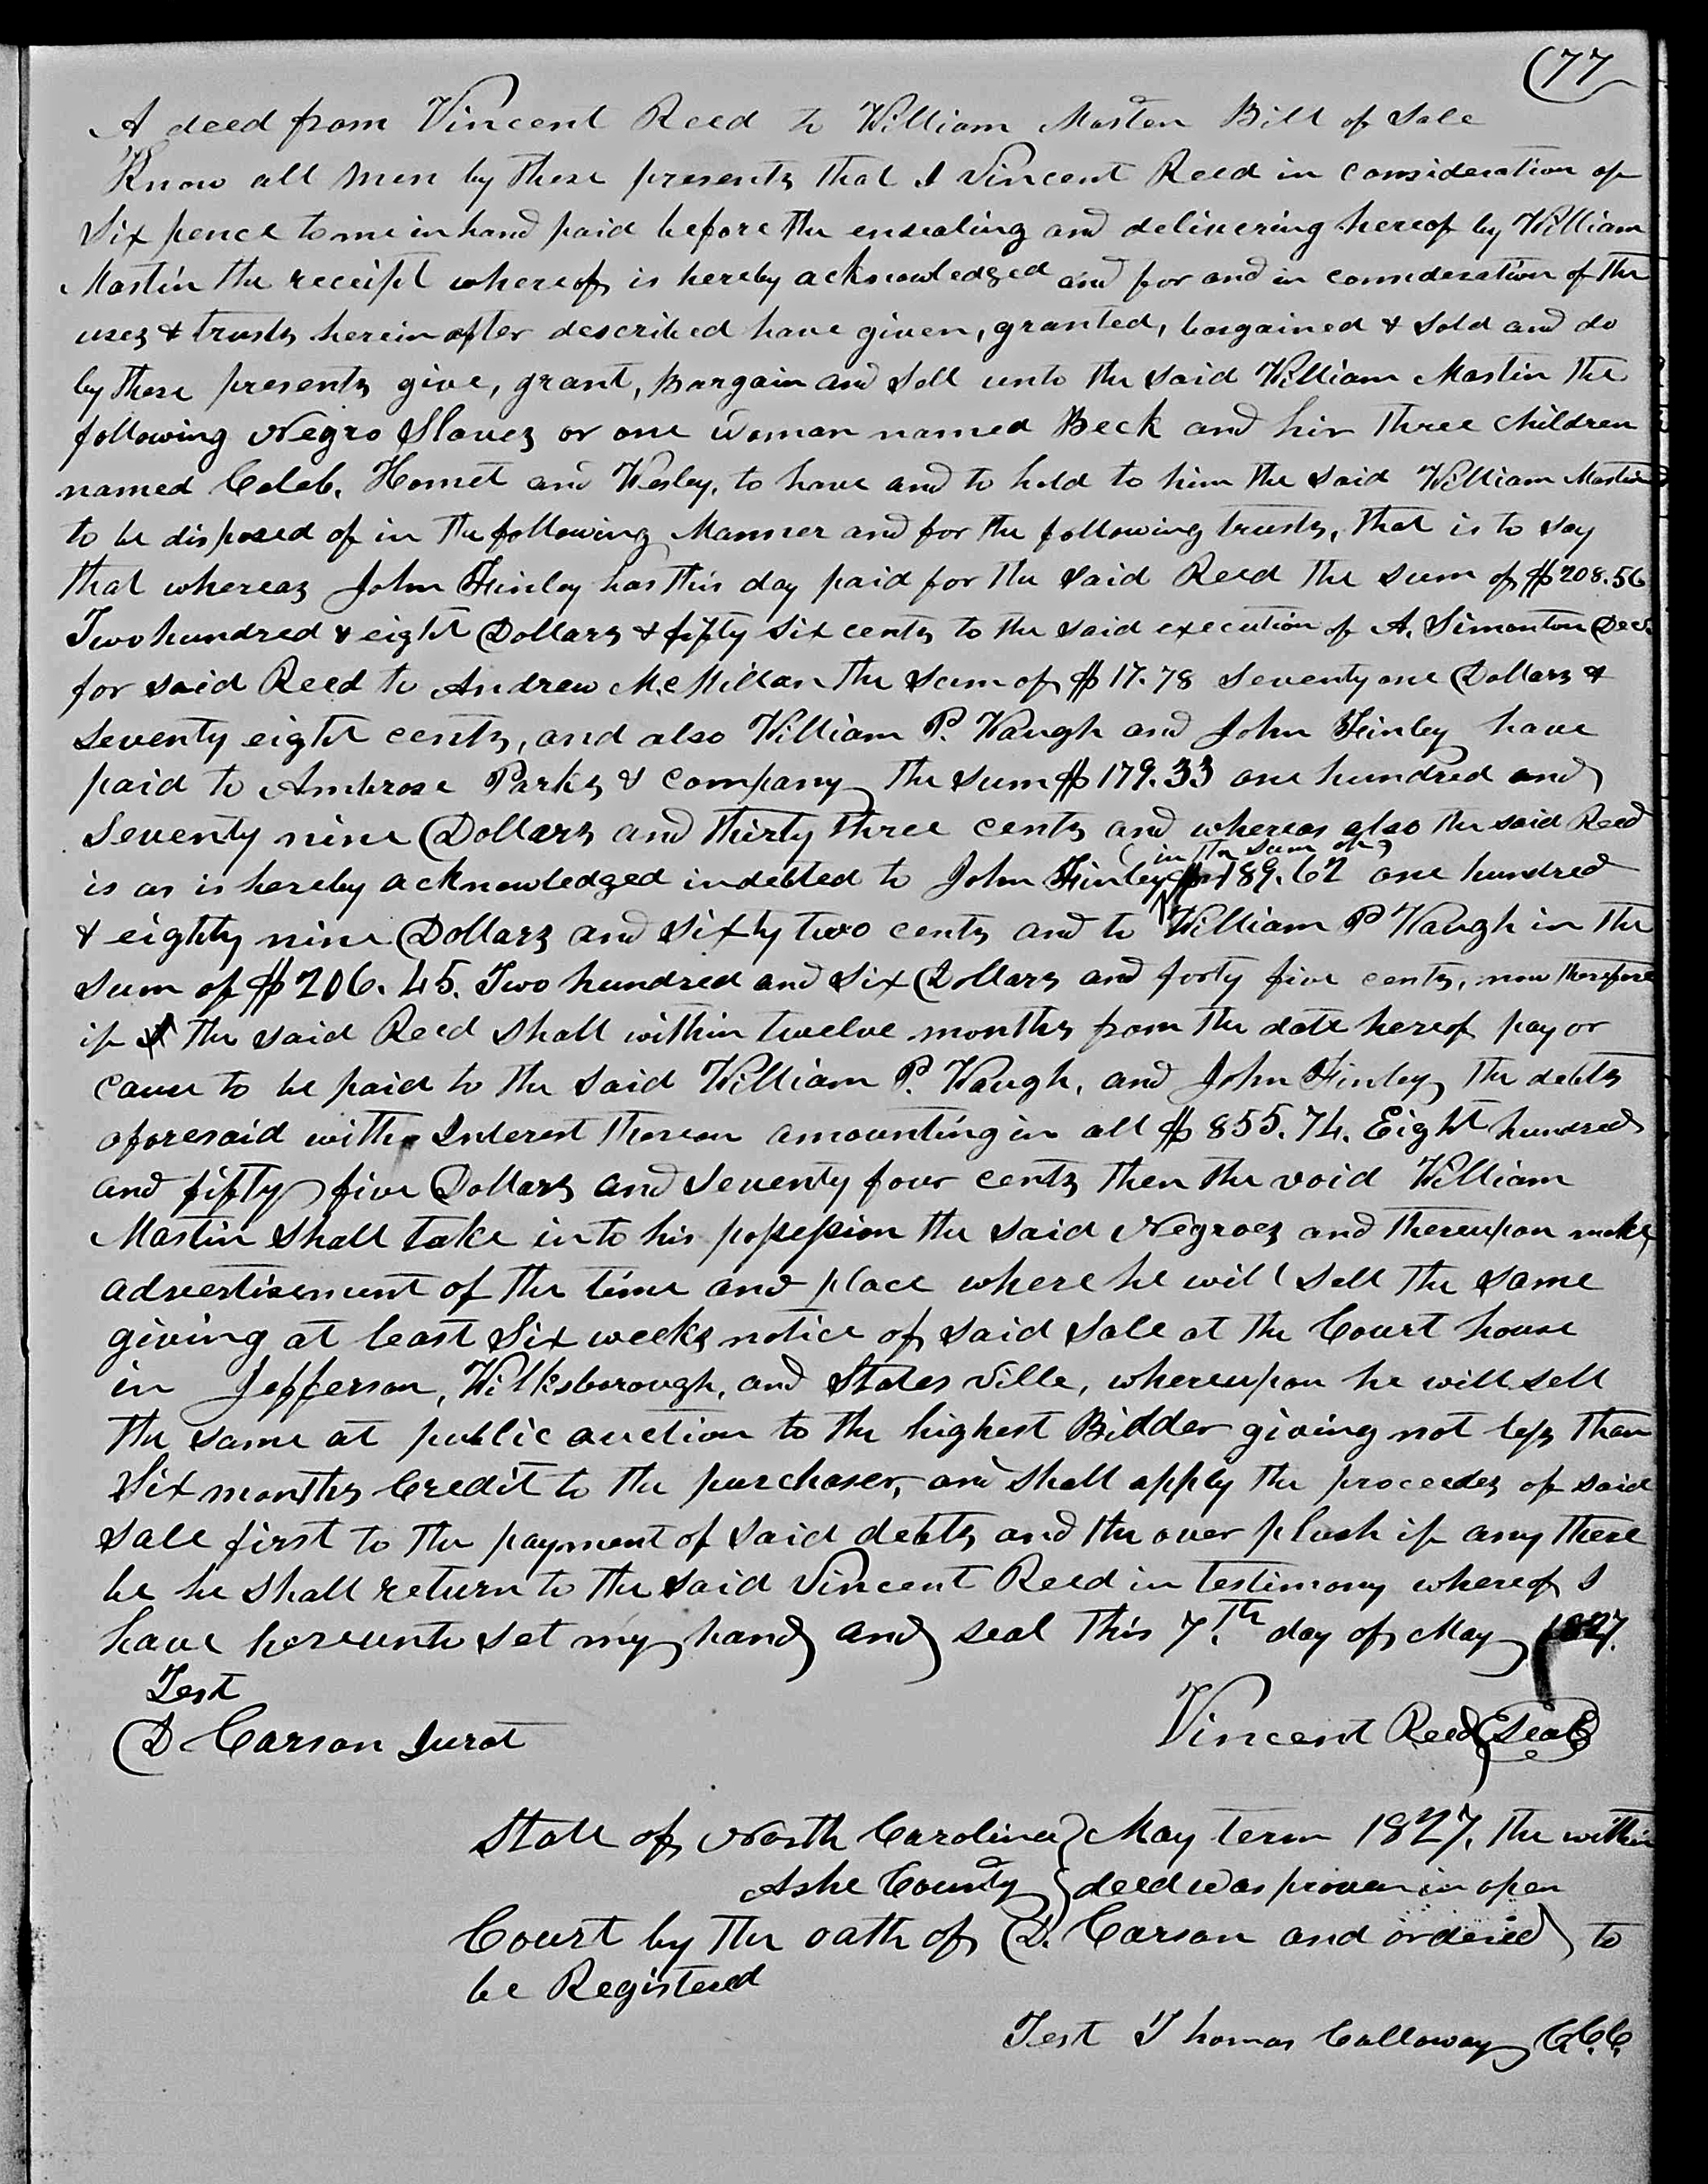 77
A deed from Vincent Reed to William Masten Bill of Sale
Know all men by these presents that I Vincent Reed in consideration of
Six pence to me in hand paid before the ensealing and delivering hereof by William
Mastin the receipt whereof is hereby acknowledged and for and in consideration of the
uses & trusts herein after described have given, granted, bargained & sold and do
by these presents give, grant, Bargain and sell unto the said William Mastin the
following Negro Slaves or one Woman named Beck and hir three children
named Caleb, Hamet and Wesley, to have and to hold to him the said William Mastin
to be disposed of in the following Manner and for the following trusts, that is to say
that whereas John Finley has this day paid for the said Reed the sum of $208.56
Two hundred & eight Dollars & fifty six cents to the said execution of A. Simonton Decd.
for said Reed to Andrew McMillan the sum of $17.78 Seventy one Dollars &
Seventy eight cents, and also William P. Waugh and John Finley have
paid to Ambrose Parks & Company the sum $179.33 one hundred and
Seventy nine Dollars and thirty three cents and whereas also the said Reed
is as is hereby acknowledged indebted to John Finley in the sum of $189.62 one hundred
& eighty nine Dollars and sixty two cents and to William P Waugh in the
sum of $206.45. Two hundred and six Dollars and forty five cents, now therefore
if the said Reed shall within twelve months from the date hereof pay or
cause to be paid to the said William P. Waugh, and John Finley, the debts
aforesaid with Interest thereon amounting in all $855.74. Eight hundred
and fifty five Dollars and seventy four cents then the void William
Mastin shall take into his possession the said Negroes and thereupon make
advertisement of the time and place where he will sell the same
giving at least Six weeks notice of said sale at the Court house
in Jefferson, Wilksborough, and States ville, whereupon he will sell
the same at public auction to the highest Bidder giving not less than
Six months Credit to the purchaser, and shall apply the proceedes of said
sale first to the payment of said debts and the over plush if any there
be he shall return to the said Vincent Reed in testimony whereof I
have hereunto set my hand and seal this 7th. day of May 1827.
Test
D Carson Jurat
Vincent Reed Seal
State of North Carolina May term 1827. the within
Ashe County deed was proven in open
Court by the oath of D. Carson and ordered to
be Registered
Test Thomas Calloway C.C.C.